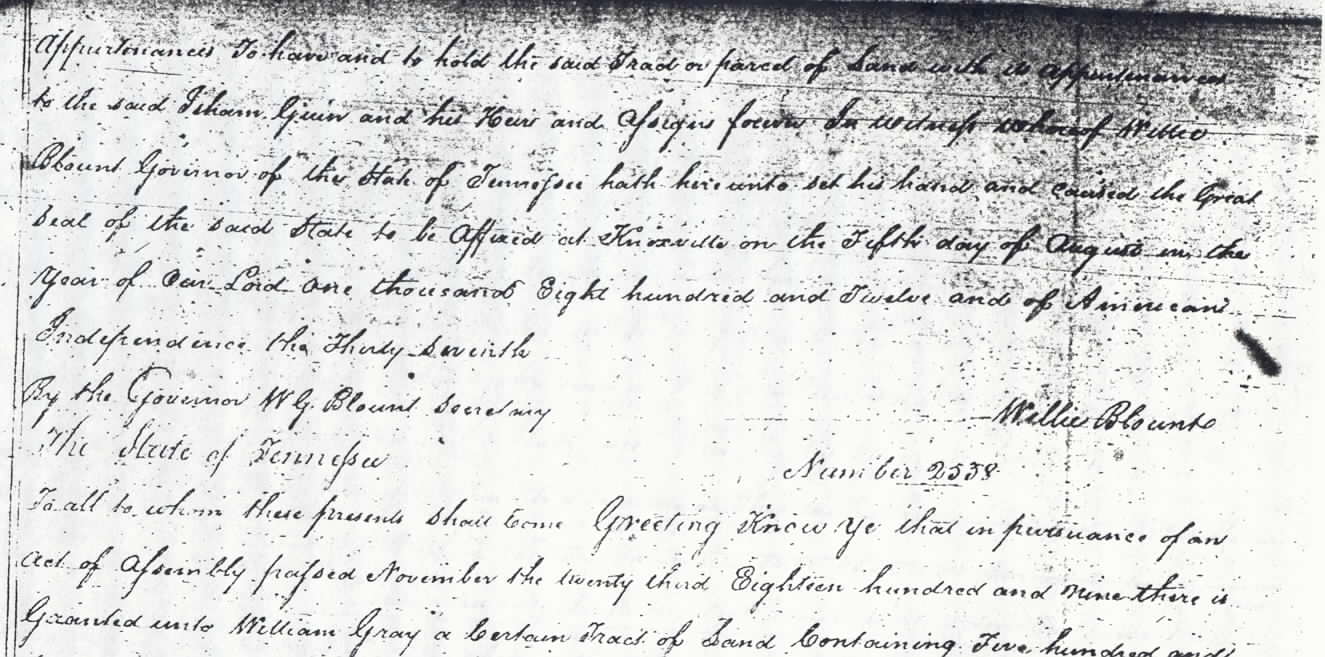 Appurtenances To have and to hold the said Tract or parcel of Land with its appurtenances
to the said Isham Guin and his Heirs and Assigns forever In witness whereof Willie
Blount Governor of the State of Tennessee hath hereunto set his hand and caused the Great
Seal of the said State to be Affixed at Knoxville on the Fifth day of August in the
Year of Our Lord One thousand Eight hundred and Twelve and of American
Independence the Thirty Seventh
By the Governor W G. Blount Secretary
Willie Blount
The State of Tennessee
Number 2538
To all to whom these presents shall come Greeting Know Ye that in pursuance of an
Act of Assembly passed November the twenty third Eighteen hundred and nine there is
Granted unto William Gray a Certain Tract of Land Containing Five hundred and